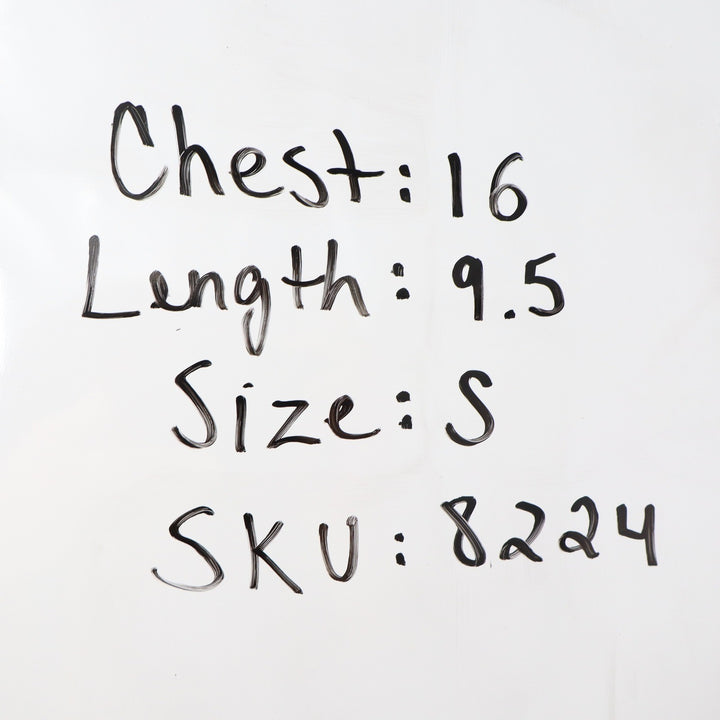 Chest: 16
Length: 9.5
Size: S
SKU: 8224